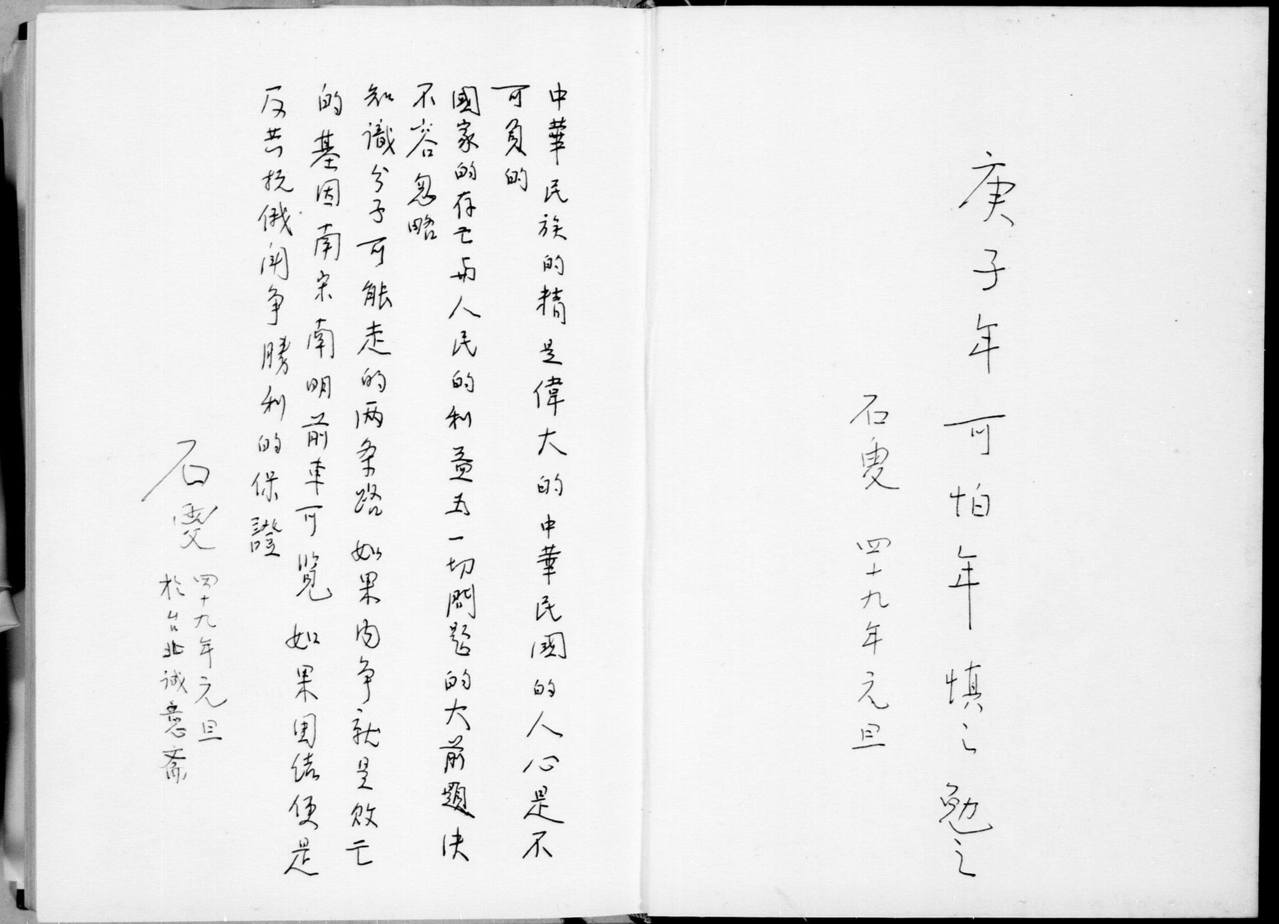 庚子年可怕年慎之勉之
石叟 四十九年元旦
中華民族的精是偉大的中華民國的人心是不
可負的
國家的存亡与人民的利益一切問題的大前題决
不容忽略
知識分子可能走的两条路如果内争就是敗亡
的基因南宋南明前車可覽如果团结便是
反共抗俄鬥争勝利的保證
石叟 四十九年元旦
於台北誠意斋